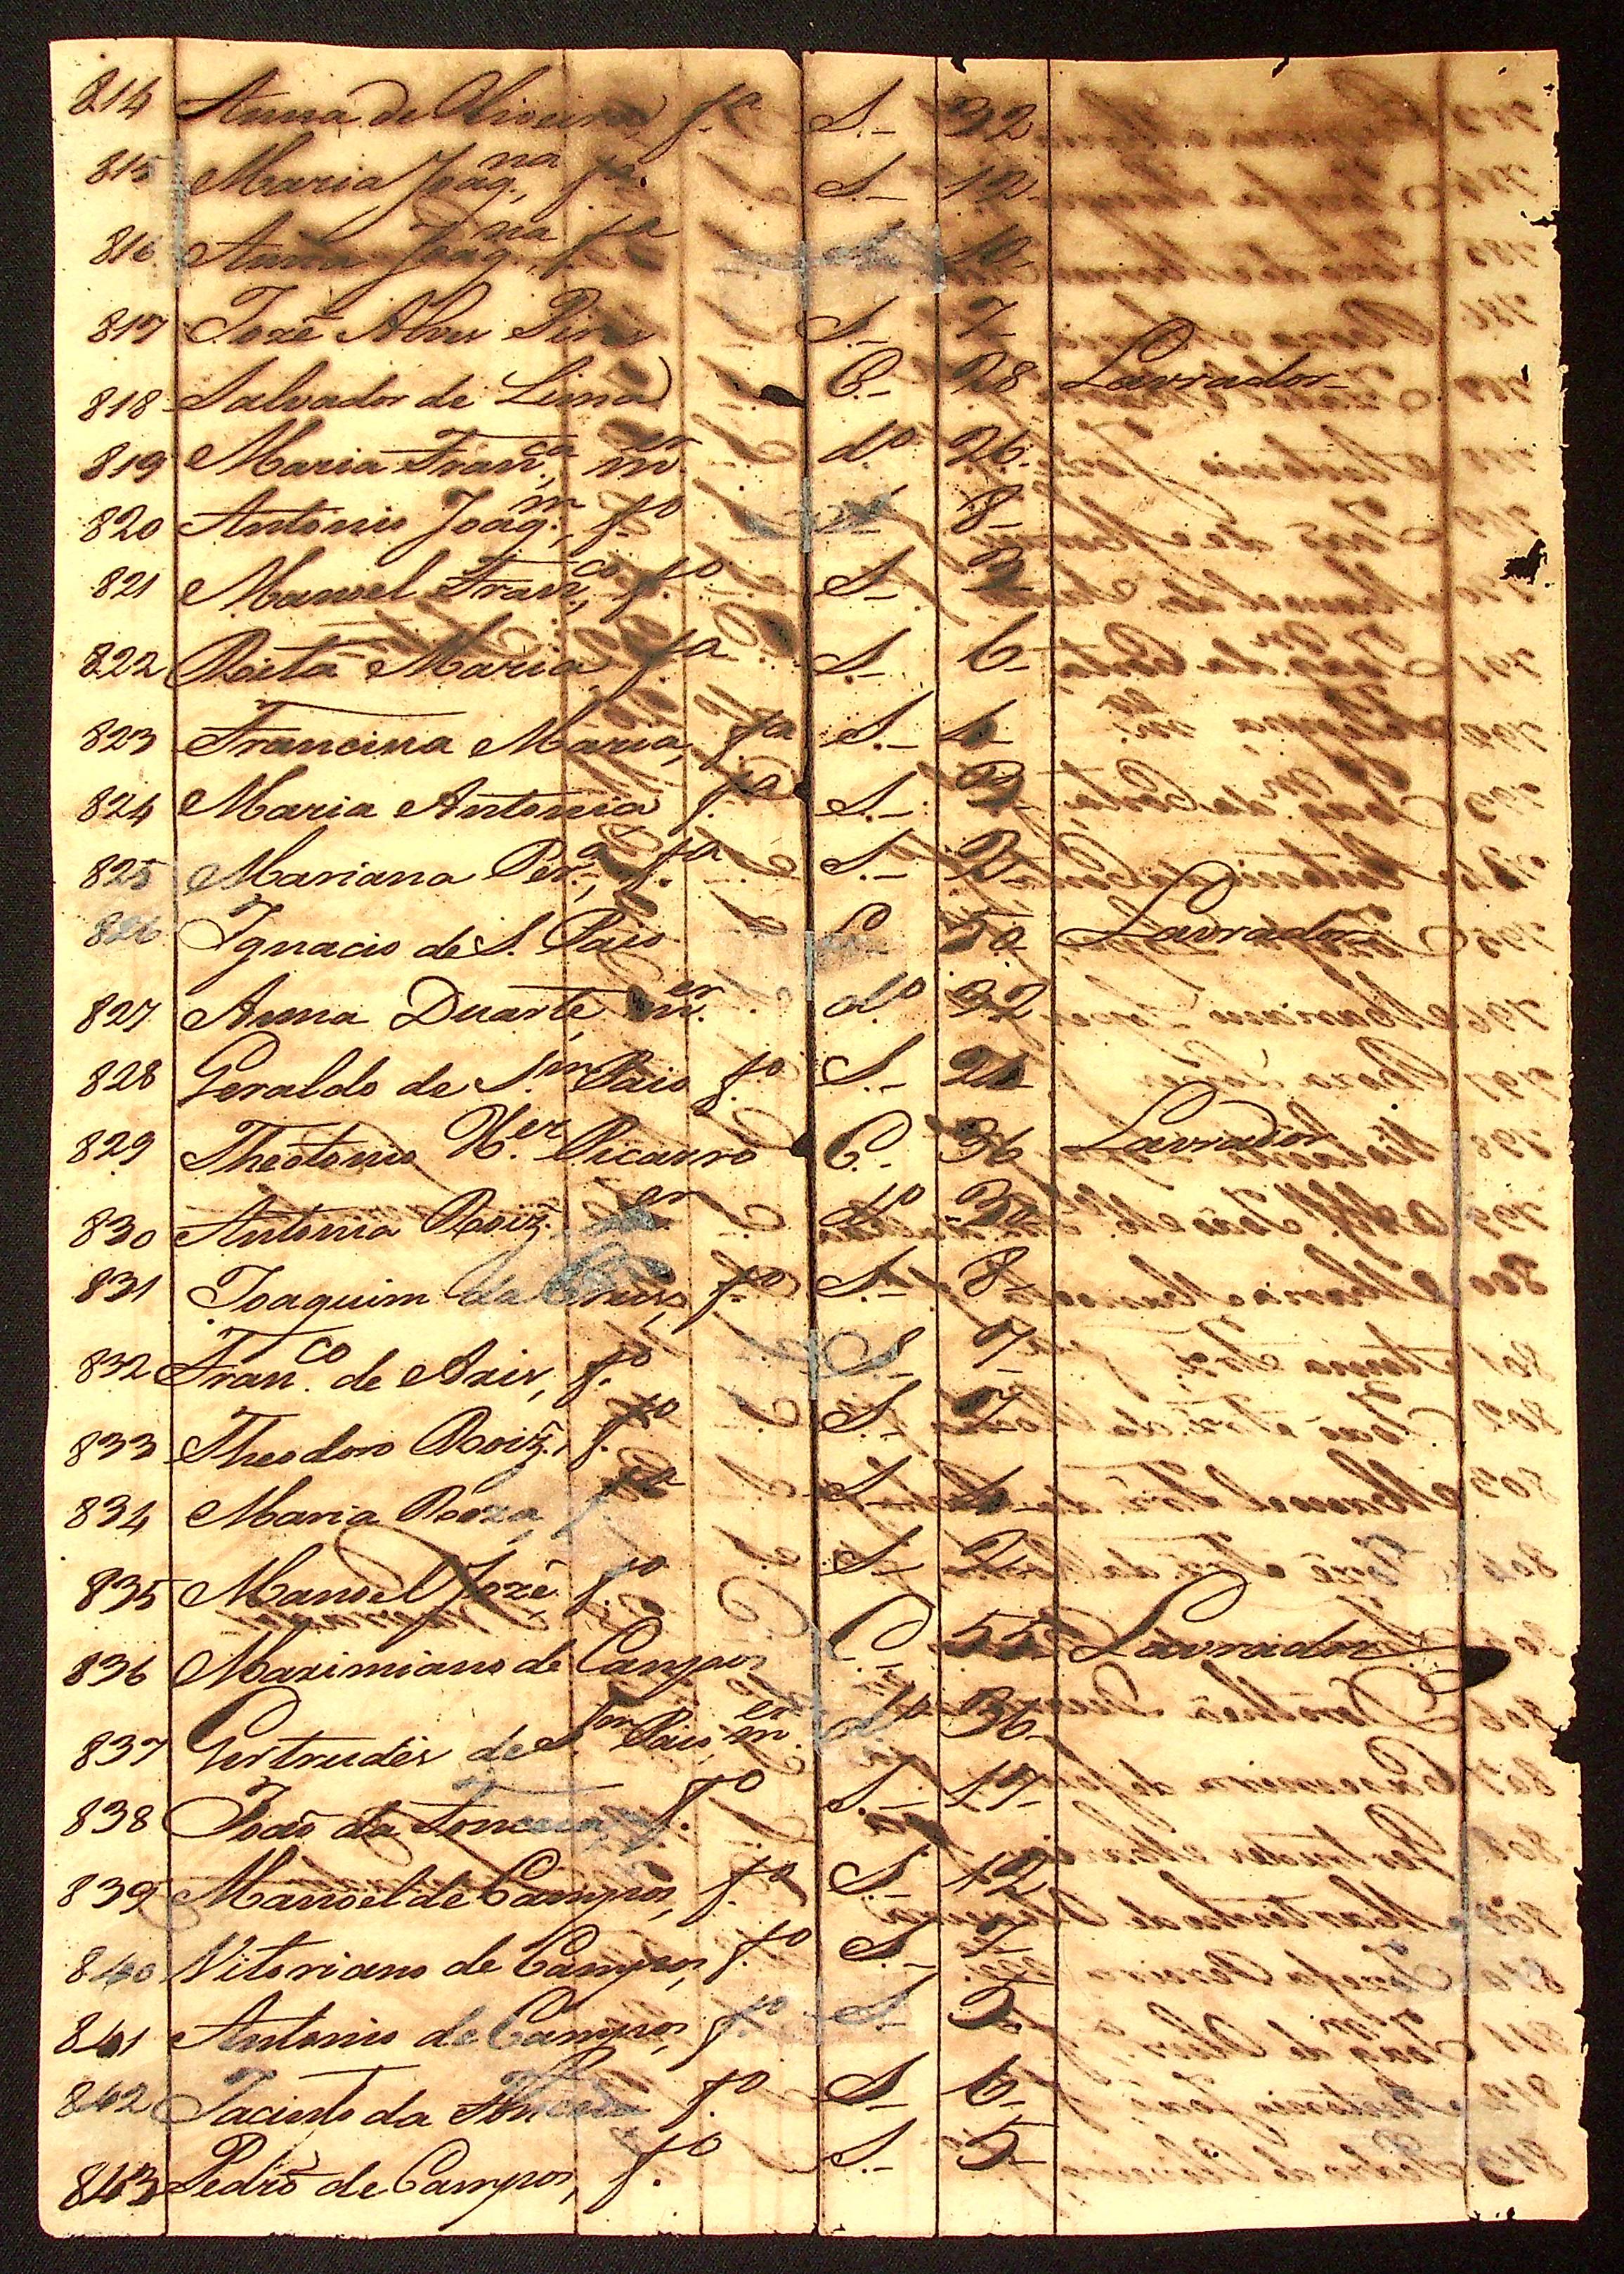 814 Anna de Oliveira, f.ª S.- 32
815 Maria Joaq.na, f.ª S.- 12-
816 Anna Joaq.na, f.ª 10
817 Jozé Alves Pires S.- 7-
818 Salvador de Lima C.- 28 Lavrador-
819 Maria Fran.ca, m.er d.º 26-
820 Antonio Joaq.m, f.º 8-
821 Manoel Fran.co, f.º S.-
822 Roita Maria f.ª S.- 6-
823 Francina Maria, f.ª S.-
824 Maria Antonia, f.ª S.-
825 Mariana Per.ª, f.ª S.- 2-
826 Ignacio de S. Paio C.- 50 Lavrador
827 Anna Duarte, m.er d.º 32
828 Geraldo de S.m Paio f.º S.-
829 Theotonio X.er Picanro C.- 36 Lavrador
830 Antonia Roiz. er d.º
831 Joaquim da Cruz, f.º S.- 8-
832 Fran.co de Axis, f.º S.- 7-
833 Theodoro Roiz., f.º S.-
834 Maria Roza, f.ª S.-
835 Manoel Jozé f.º S.- 2-
836 Maximiano de Campos C.- 55 Lavrador
837 Gertrudes de S.m Paio, m.er d.º 36-
838 João da Fonceca, f.º S.- 17-
839 Manoel de Campos, f.º S.- 12
840 Vitoriano de Campos, f.º S.- 7-
841 Antonio de Campos, f.º S.- 5
842 Jacinto da Fonceca f.º S.- 6-
843 Pedro de Campos, f.º S.- 5-